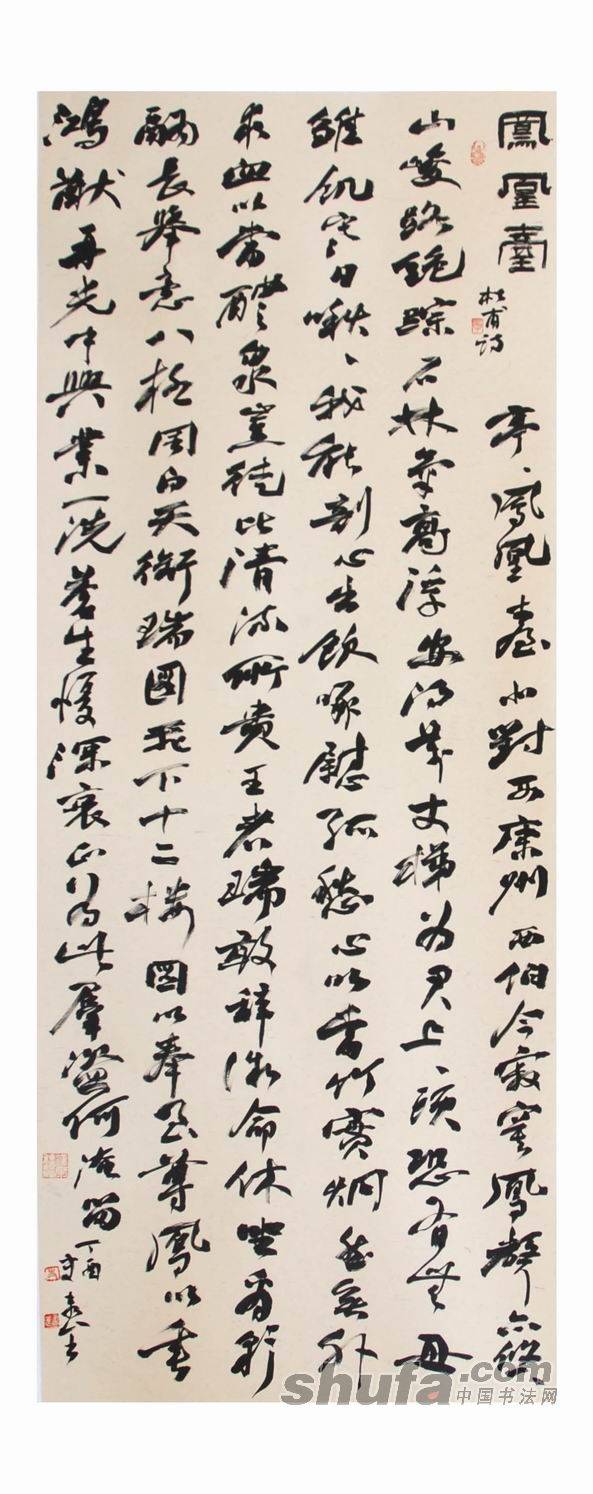 鳳凰臺
杜甫詩
亭〻鳳凰臺北對西康州西伯今寂寞鳳聲亦悠〻
山峻路绝踪石林氣高浮安得萬丈梯为君上〻頭恐有無母
雛飢寒日啾〻我能剖心出飲啄慰孤愁心以當竹實炯然無外
求血以當醴泉豈徒比清流所貴王者瑞敢辞微命休坐看彩
翮長舉意八極周自天銜瑞圖飛下十二楼圖以奉至尊鳳以垂
鴻猷再光中興業一洗蒼生憂深衷正为此羣盜何淹留
丁酉
shufa.com
中国书法网